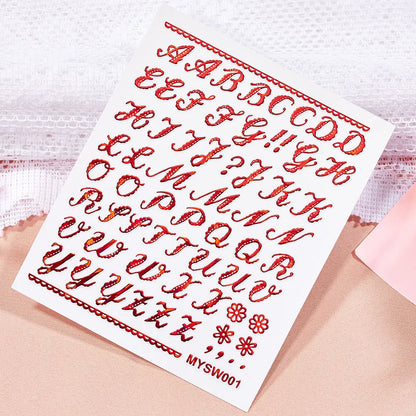 A A B B C C D D
E E F F G !! G H
H I I J J ? K K
L L M M N N
O O P P Q Q
R R S S T T U U V
V W W X X
Y Y Y Z Z Z , , . .
MYSW001